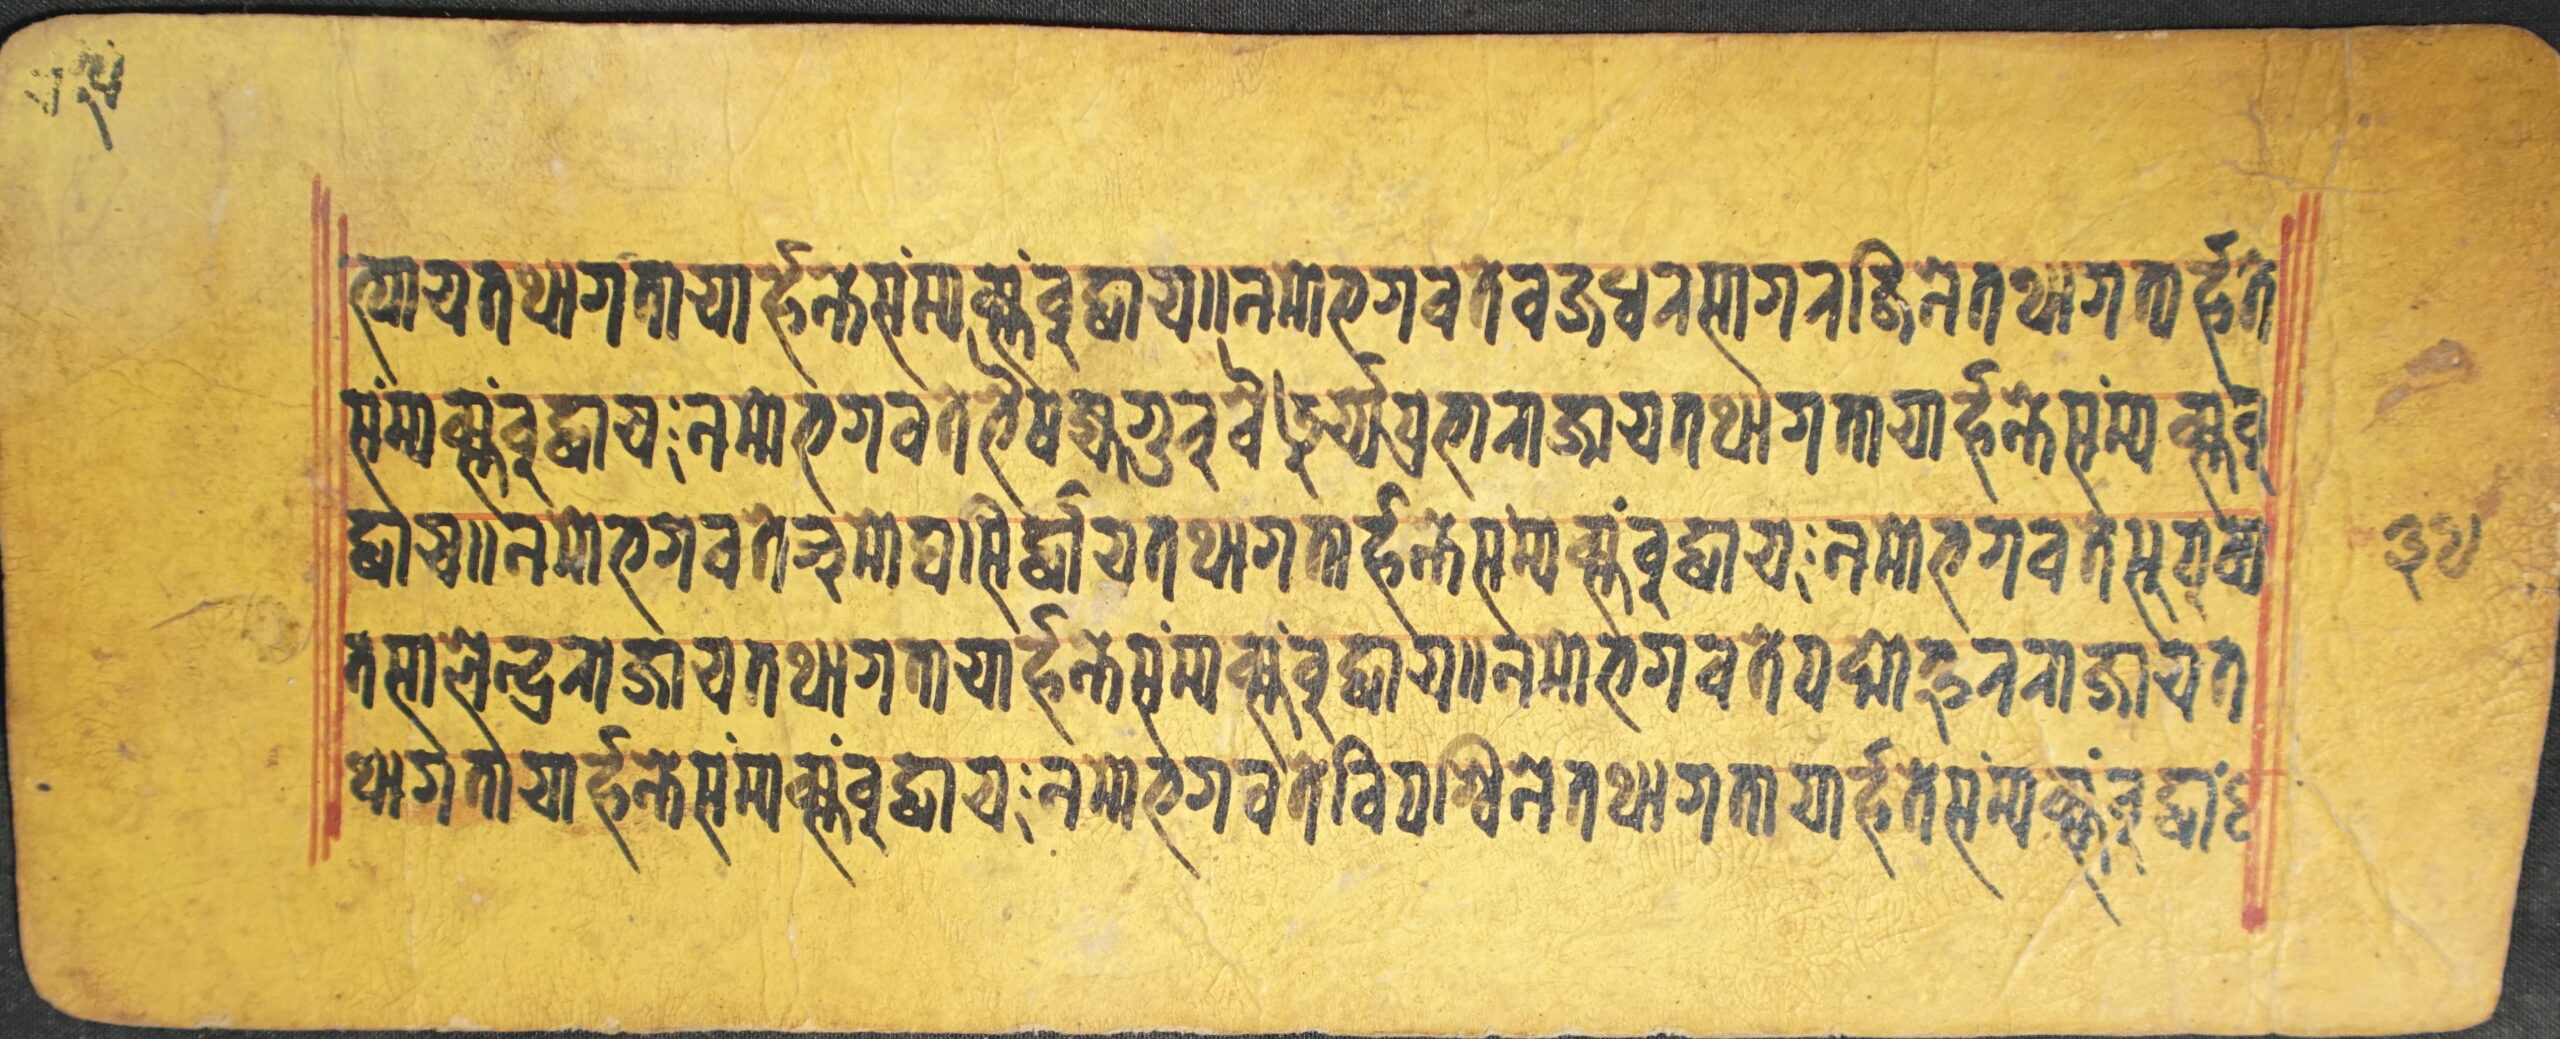 त्याय तथागतायार्हन्ते संम्यक्संबुद्धाय॥ नमो भगवते वज्रधरसागरर्जिने तथागतार्हते
संम्यक्संबुद्धाय ः नमो भगवते भैषज्यगुरुवैडूर्यप्रभाराजाय तथागतायार्हन्ते संम्यक्संबु
द्धाय॥ नमो भगवते अमोघसिद्धाय तथागतार्हन्ते सम्यक्संबुद्धाय ः नमो भगवते सुपुष्पि
तसालेन्द्रराजाय तथागतायार्हन्ते संम्यक्संबुद्धाय॥ नमो भगवते पद्मोद्भरराजाय त
थागतायार्हन्ते संम्यक्संबुद्धाय ः नमो भगवते विपश्विने तथागतायार्हते संम्यक्संबुद्धा
३५